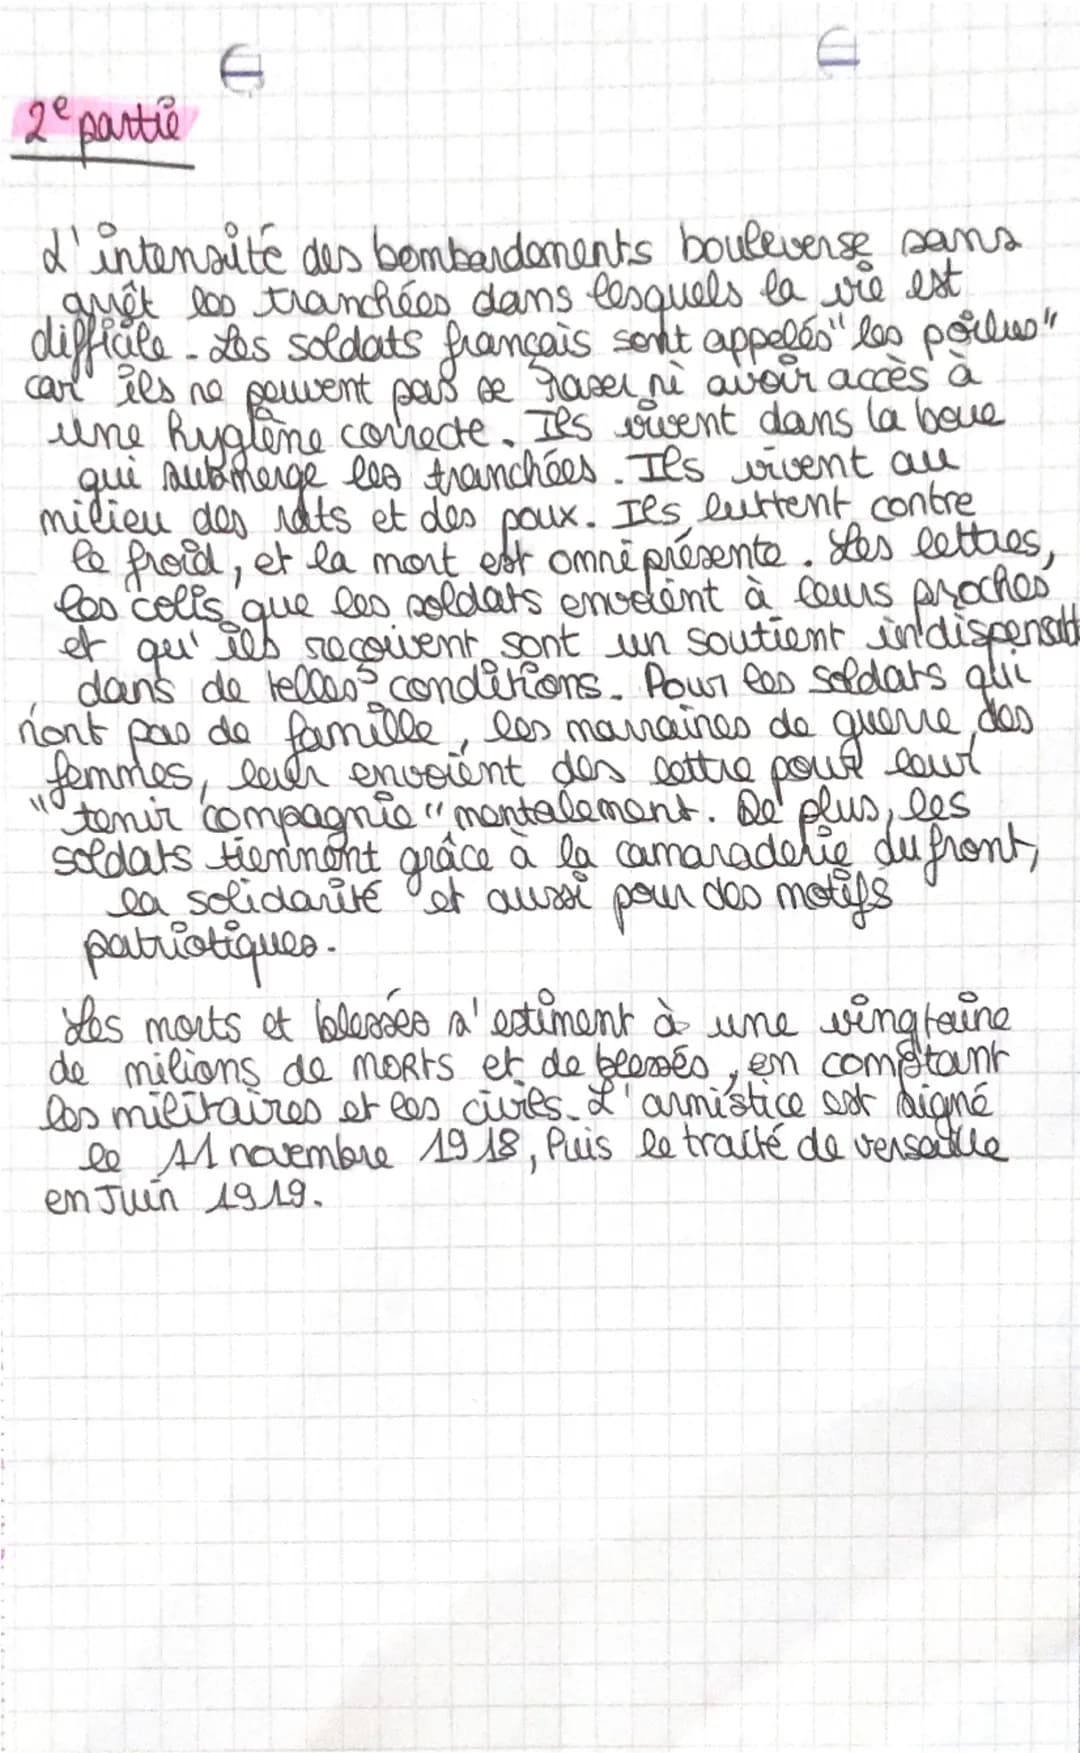 2e partie
L'intensité des bombardements bouleverse sans
arrêt les tranchées dans lesquels la vie est
difficile. Les soldats français sont appelés "les poilus"
car ils ne peuvent pas se raser ni avoir accès à
une hygiène correcte. Ils vivent dans la boue
qui submerge les tranchées. Ils vivent au
milieu des rats et des poux. Ils luttent contre
le froid, et la mort est omniprésente. Les lettres,
les colis que les soldats envoient à leurs proches
et qu'ils reçoivent sont un soutient indispensabl
dans de telles conditions. Pour les soldats qui
n'ont pas de famille, les marraines de guerre, des
femmes, leur envoient des lettre pour leur
"tenir compagnie" mentalement. De plus, les
soldats tiennent grâce à la camaraderie du front,
la solidarité et aussi pour des motifs
patriotiques.
Les morts et blessés s'estiment à une vingtaine
de milions de morts et de blessés, en comptant
les militaires et les civils. L'armistice est signé
le 11 novembre 1918, Puis le traité de versaille
en Juin 1919.